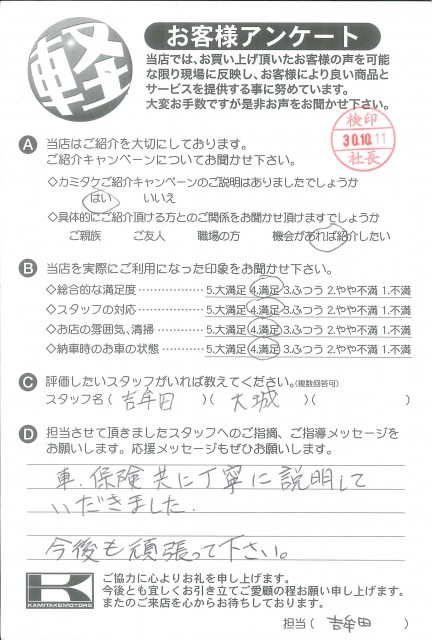 軽
お客様アンケート
当店では、お買い上げ頂いたお客様の声を可能
な限り現場に反映し、お客様により良い商品と
サービスを提供する事に努めています。
大変お手数ですが是非お声をお聞かせ下さい。
検印
30.10.11
社長
A 当店はご紹介を大切にしております。
ご紹介キャンペーンについてお聞かせ下さい。
◇カミタケご紹介キャンペーンのご説明はありましたでしょうか
はい いいえ
◇具体的にご紹介頂ける方とのご関係をお聞かせ頂けますでしょうか
ご親族 ご友人 職場の方 機会があれば紹介したい
B 当店を実際にご利用になった印象をお聞かせ下さい。
◇総合的な満足度 5.大満足 4.満足 3.ふつう 2.やや不満 1.不満
◇スタッフの対応 5.大満足 4.満足 3.ふつう 2.やや不満 1.不満
◇お店の雰囲気、清掃 5.大満足 4.満足 3.ふつう 2.やや不満 1.不満
◇納車時のお車の状態 5.大満足 4.満足 3.ふつう 2.やや不満 1.不満
C 評価したいスタッフがいれば教えてください。(複数回答可)
スタッフ名( 吉牟田 )( 大城 )( )
D 担当させて頂きましたスタッフへのご指摘、ご指導メッセージを
お願いします。応援メッセージもぜひお願いします。
車、保険共に丁寧に説明して
いだきました。
今後も頑張って下さい。
K
KAMITAKEMOTORS
ご協力に心よりお礼を申し上げます。
今後とも宜しくお引き立てご愛顧の程お願い申し上げます。
またのご来店を心からお待ちしております。
担当( 吉牟田 )